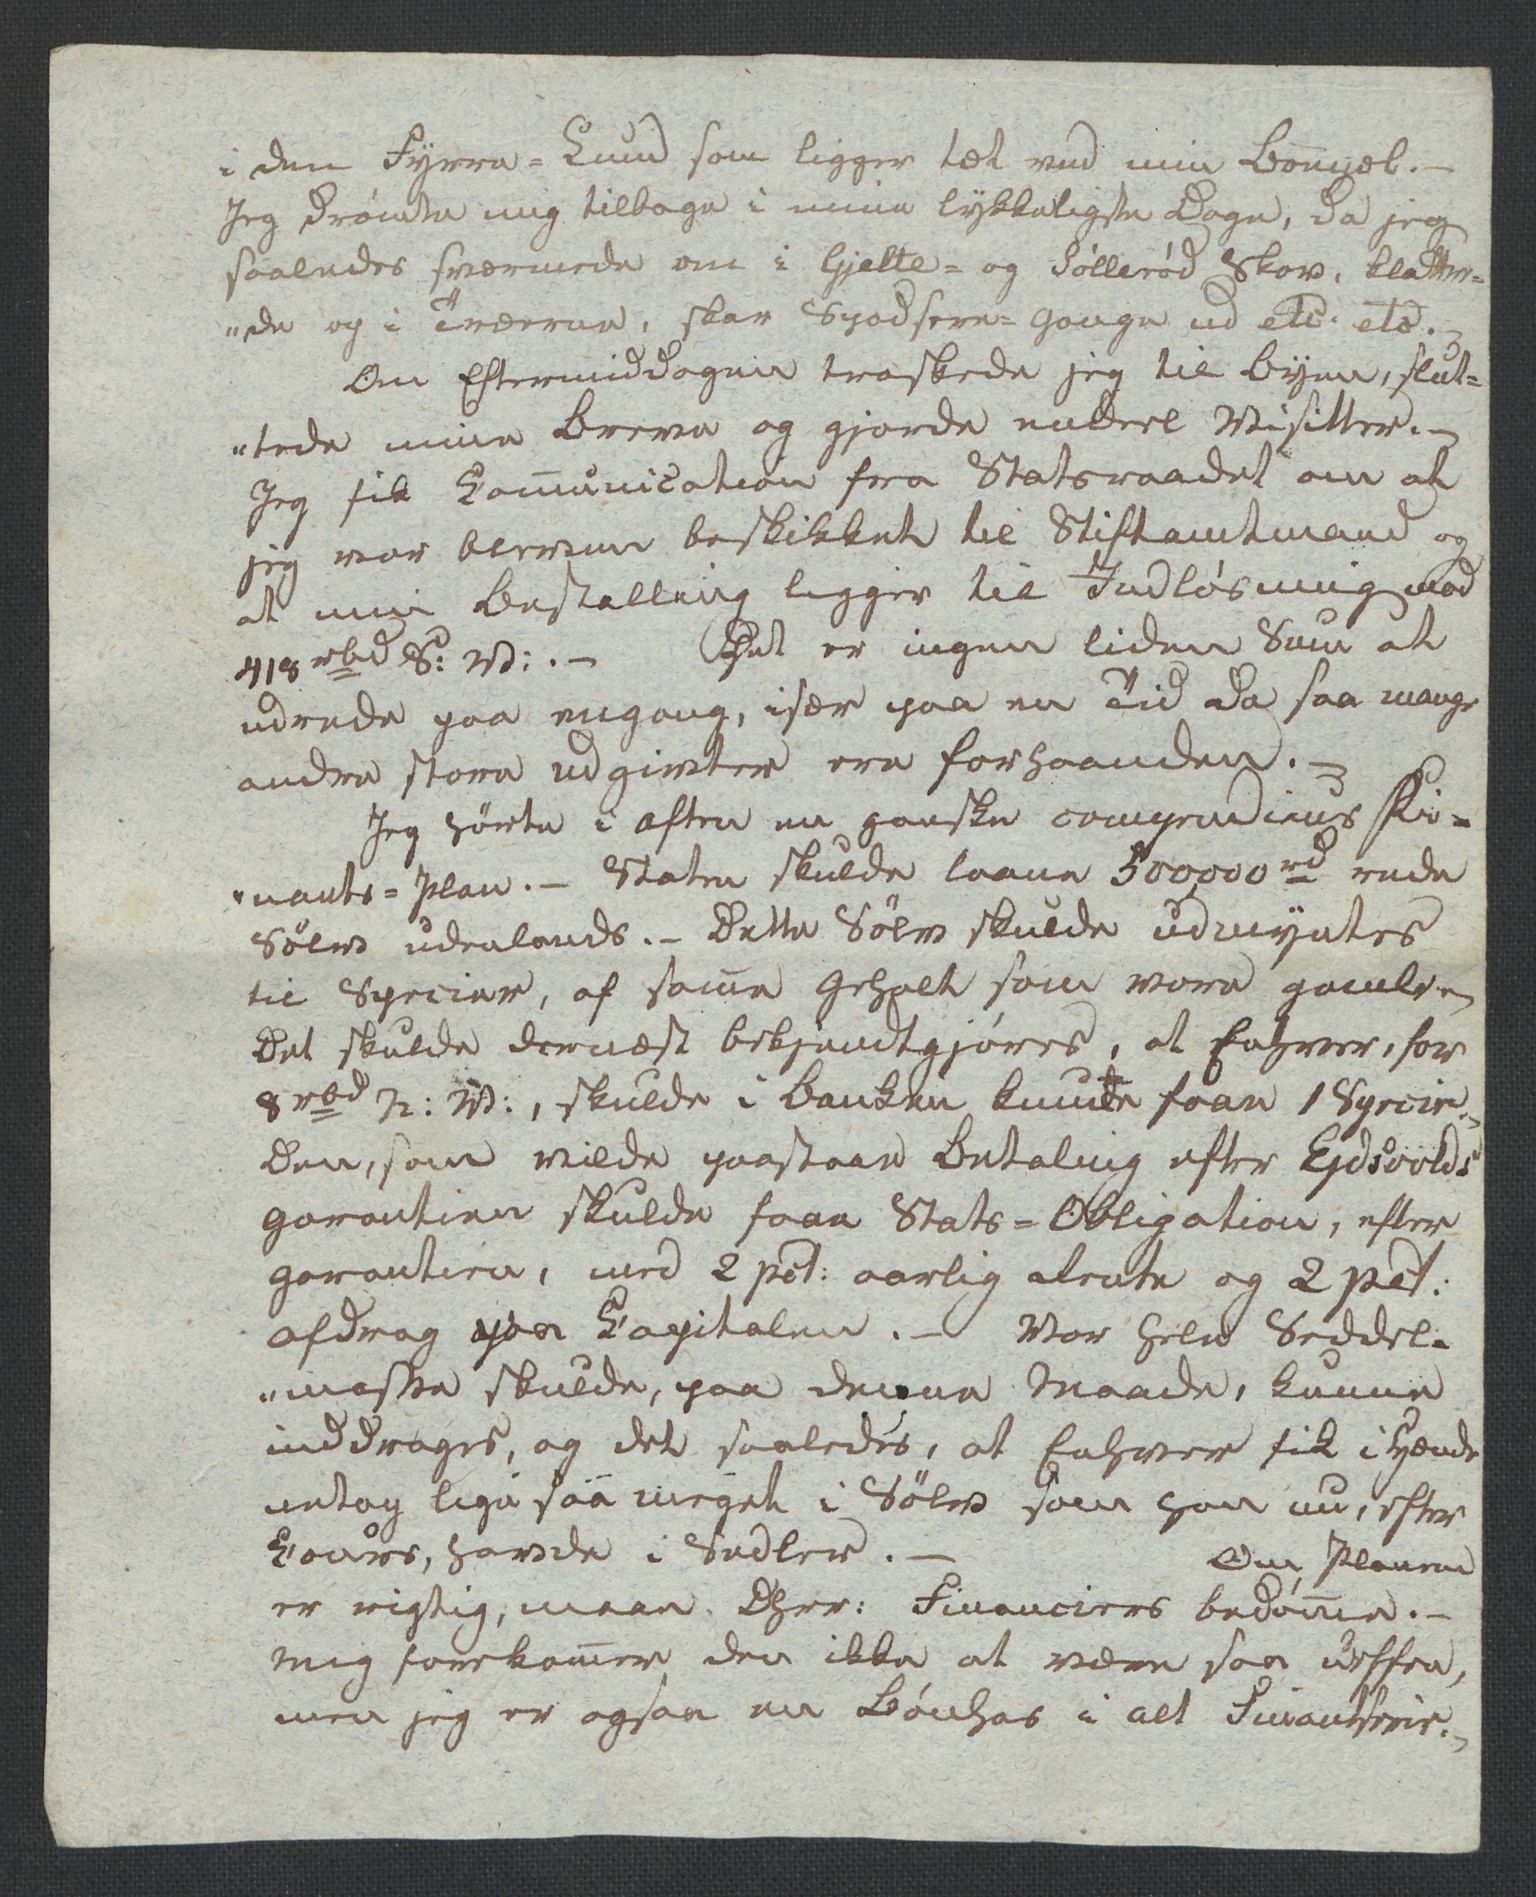 i den Fyrre=Lund som ligger tæt ved min Bopæl.—
Jeg drömte mig tilbage i mine lykkeligste Dage, da jeg
saaledes sværmede om i Gjelte= og Sölleröd Skov, klattre=
"de op i Træerne, skar Spadsere=Gange ud etc. etc.—
Om Eftermiddagen traskede jeg til Byen, slut=
"tede mine Breve og gjorde endeel Visitter.—
Jeg fik Com̄unication fra Statsraadet om at
jeg var bleven beskikket til Stiftamtmand og
at min Bestalling ligger til Indlösning mod
418 rbd S: V:.— Det er ingen liden Sum at
udrede paa engang, især paa en Tid da saa mange
andre store udgivter ere forhaanden.—
Jeg hörte i aften en ganske compendieus Fi=
"nants=Plan.— Staten skulde laane 500,000 rd rede
Sölv udenlands.— Dette Sölv skulde udmyntes
til Specier, af sam̄e Gehalt som vore gamle.—
Det skulde dernæst bekjendtgjöres, at Enhver, for
8 rbd N: V:, skulde i Banken kunde faae 1 Specie.—
Den, som vilde paastaae Betaling efter Ejdsvolds
garantien skulde faae Stats=Obligation, efter
garantien, med 2 pct: aarlig Rente og 2 pct:
afdrag paa Capitalen.— Vor hele Seddel=
"masse skulde, paa denne Maade, kunne
inddrages, og det saaledes, at Enhver fik i Hænde
netop lige saa meget i Sölv som han nu, efter
Cours, havde i Sedler.— Om Planen
er rigtig, maae Dhrr: Financiers bedöm̄e.—
Mig forekom̄er den ikke at være saa ueffen,
men jeg er ogsaa en Bönhas i alt Finantserie.—